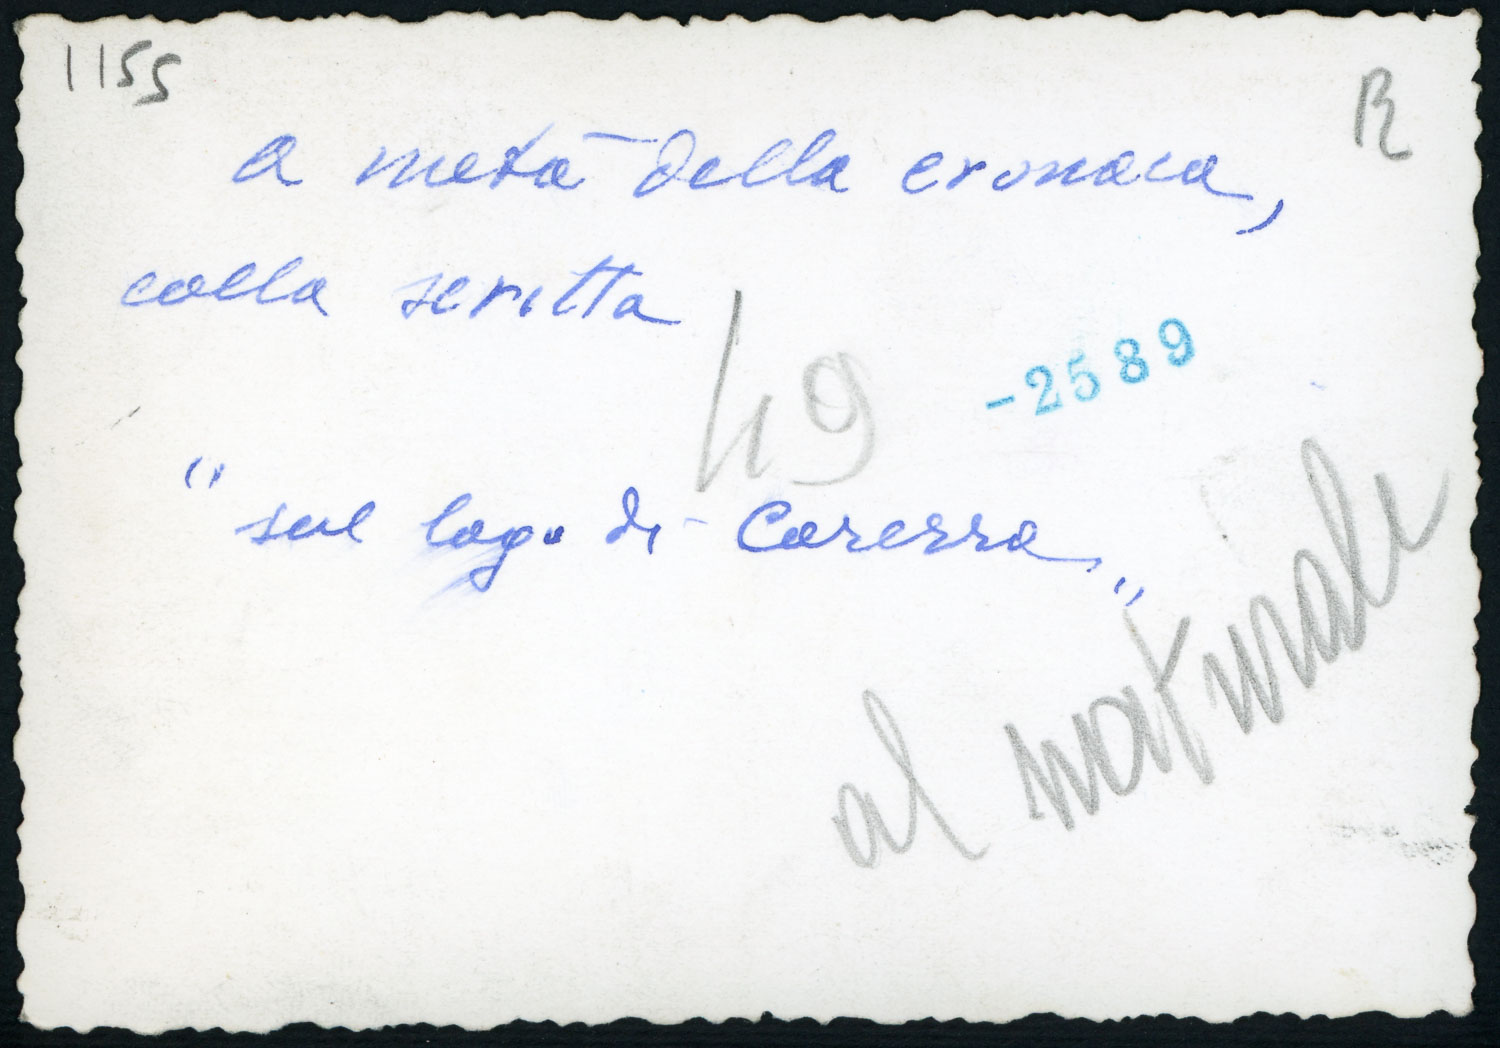 1155
R
a metà della cronaca,
colla scritta
49
-2589
"sul lago di Carezza"
al naturale